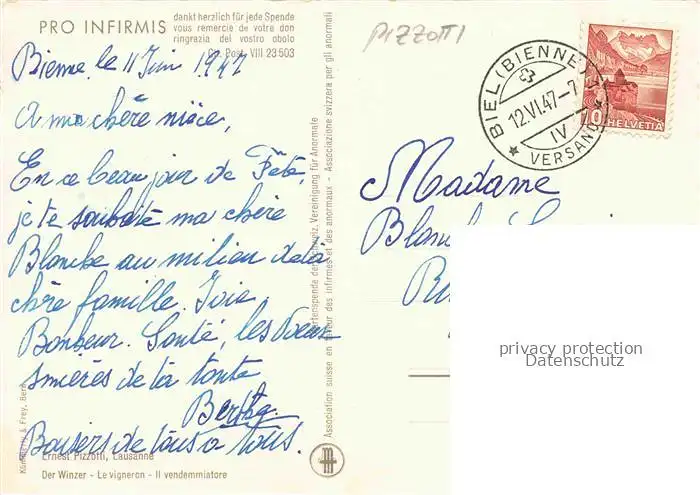 PRO INFIRMIS
dankt herzlich für jede Spende
vous remercie de votre don
ringrazia del vostro obolo
Cp. Post. VIII 23 503
Bienne, le 11 Juin 1947
A ma chère nièce,
En ce beau jour de Fête,
je te souhaite ma chère
Blanche au milieu de ta
chère famille. Joie,
Bonheur. Santé, les vœux
sincères de ta tante
Bertha.
Baisers de tous a tous.
Ernest Pizzotti, Lausanne
Der Winzer - Le vigneron - Il vendemmiatore
Kümmerly & Frey, Bern
Kartenspende der Schweiz. Vereinigung für Anormale
Association suisse en faveur des infirmes et des anormaux - Associazione svizzera per gli anormali
PIZZOTTI
BIEL (BIENNE) 1
12.VI.47-7
IV
VERSAND
10 HELVETIA
Madame
privacy protection
Datenschutz